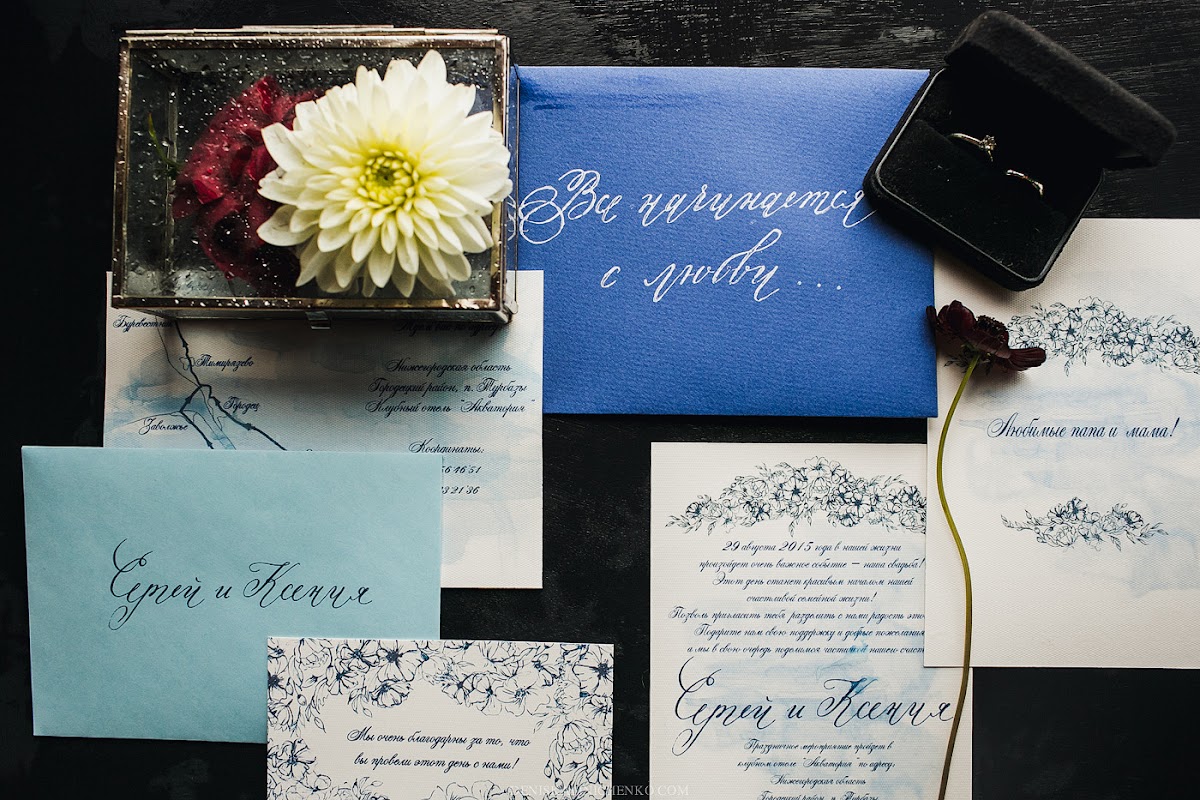 Все начинается
с любви...
Буревестник
Тимирязево
Городец
Заволжье
Нижегородская область
Городецкий район, п. Турбазы
Клубный отель "Акватория"
Координаты:
56 46'51
43 21'36
Любимые папа и мама!
Сергей и Ксения
29 августа 2015 года в нашей жизни
произойдет очень важное событие – наша свадьба!
Этот день станет красивым началом нашей
счастливой семейной жизни!
Позволь пригласить тебя разделить с нами радость
Подарите нам свою поддержку и добрые пожелания
и мы в свою очередь поделимся частичкой нашего
Сергей и Ксения
Праздничное мероприятие пройдет в
клубном отеле "Акватория" по адресу:
Нижегородская область
Городецкий район, п. Турбазы
Мы очень благодарны за то, что
вы провели этот день с нами!